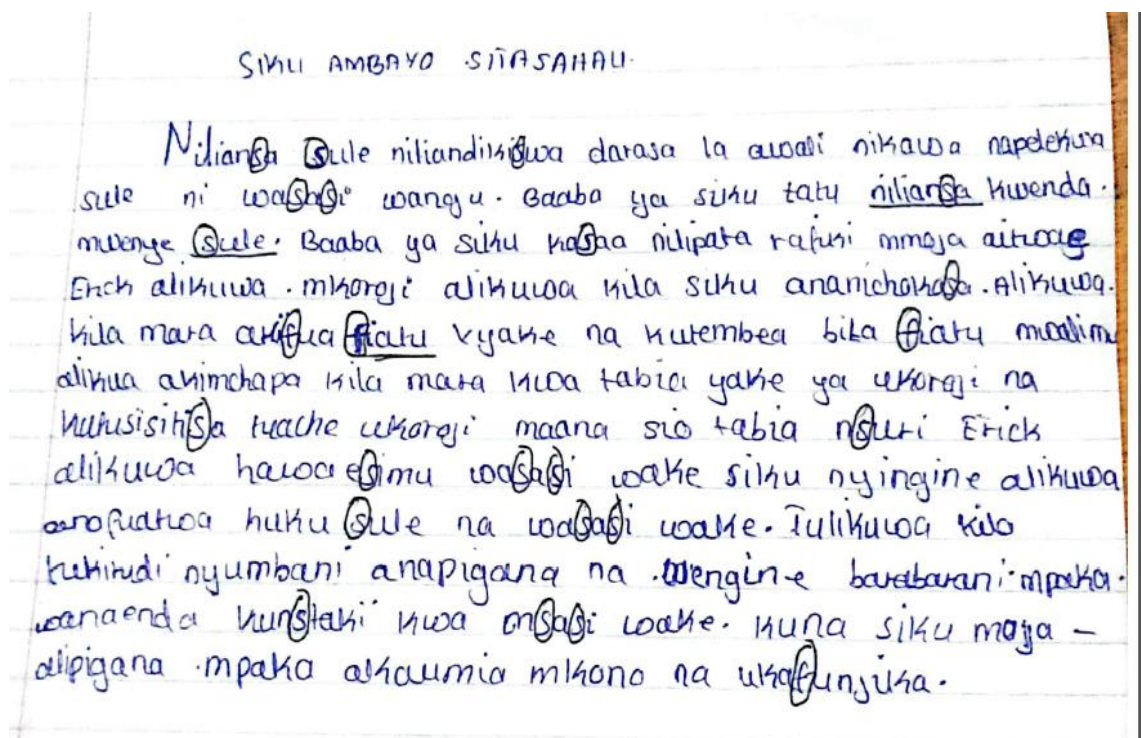 SIKU AMBAYO SITASAHAU.
Niliansa sule niliandikiswa darasa la awali nikawa napelekwa
sule ni wasasi wangu. Baaba ya siku tatu niliansa kwenda.
mwenye sule. Baaba ya siku kasaa nilipata rafiki mmoja aitwae
Erick alikuwa mkoroji alikuwa kila siku ananichokosa. Alikuwa.
kila mara akifua fiatu vyake na kutembea bila fiatu mwalimu
alikua akimchapa kila mara kwa tabia yake ya ukoroji na
kutusisitisa tuache ukoroji maana sio tabia nsuri Erick
alikuwa hawaesimu wasasi wake siku nyingine alikuwa
anafuatwa huku sule na wasasi wake. Tulikuwa kila
tukirudi nyumbani anapigana na wengine barabarani mpaka.
wanaenda kunstaki kwa msasi wake. kuna siku moja –
alipigana mpaka akaumia mkono na ukafunjika.